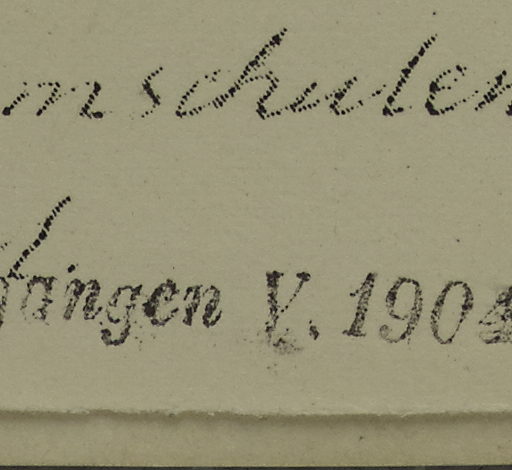 mschulen
fangen V. 1904